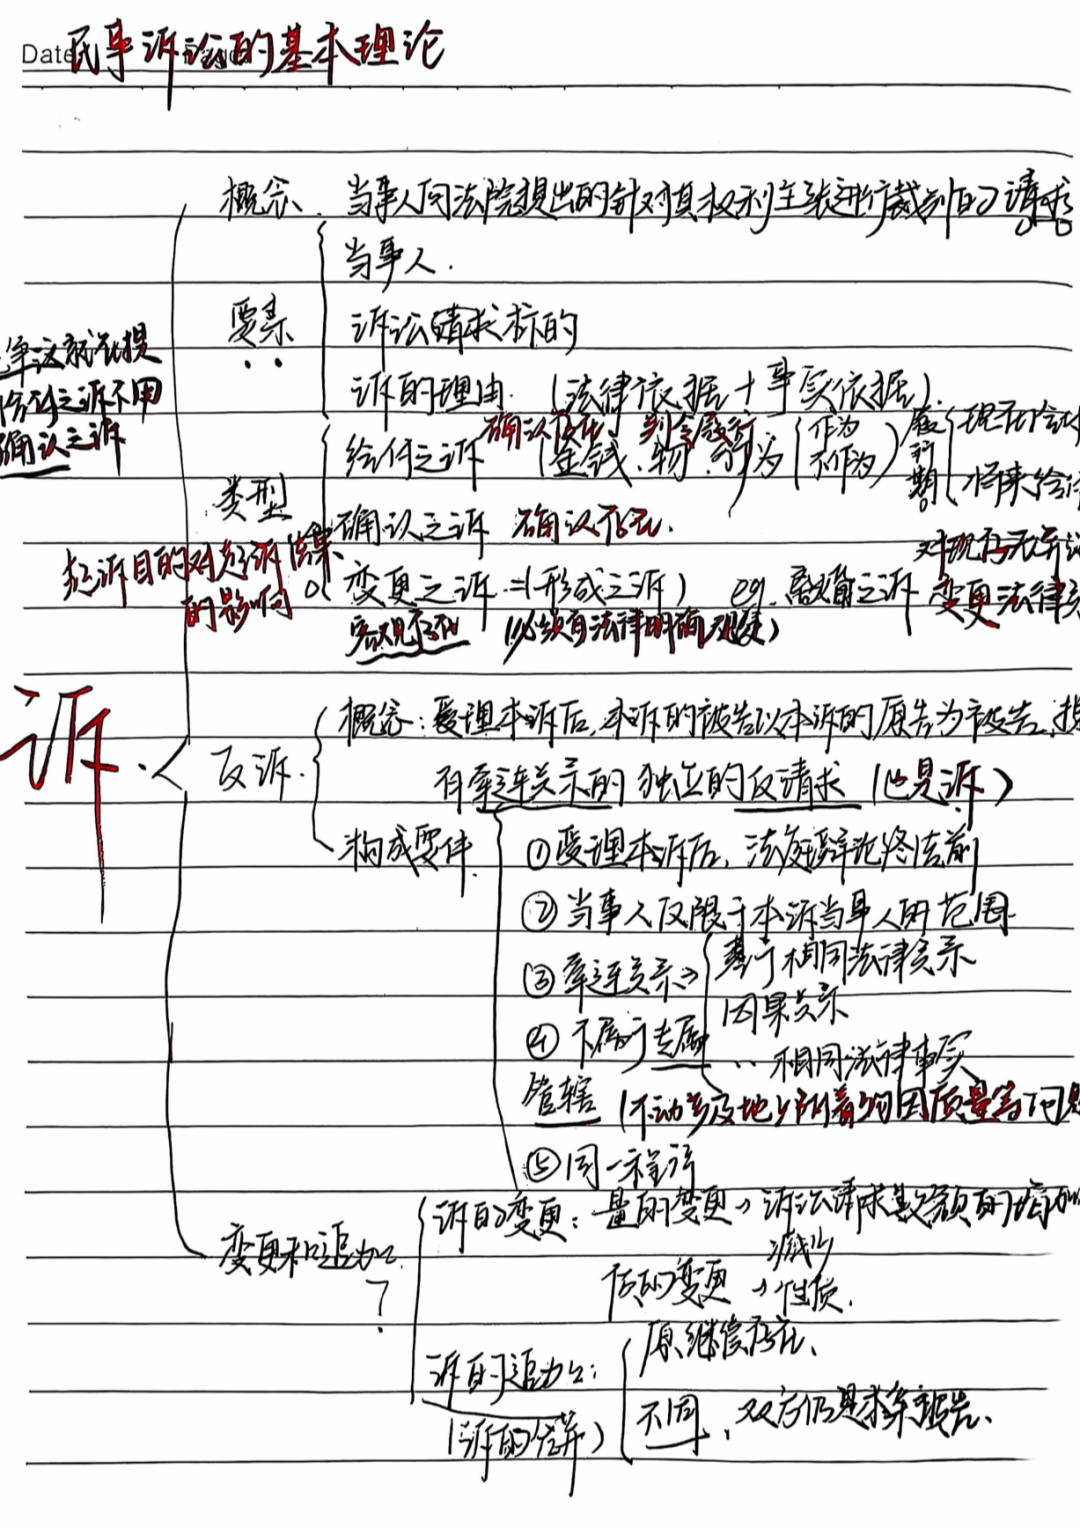 Date
民事诉讼的基本理论
概念 当事人向法院提出的针对其权利主张进行裁判的请求
要素 当事人.
诉讼请求标的
诉的理由. (法律依据+事实依据)
争议就不提
给付之诉不用
确认之诉
确认存在 判令履行
给付之诉 (金钱、物、行为 (作为 不作为) 履行期 现在给付
将来给付
类型
确认之诉 确认存否.
起诉目的对起诉结果
的影响
变更之诉 =(形成之诉) eg. 离婚之诉
对现存无争议
变更法律关
客观存在 (必须有法律明确规定)
诉.
反诉. 概念:受理本诉后,本诉的被告以本诉的原告为被告,提
有牵连关系的 独立的反请求 (也是诉)
构成要件 ①受理本诉后,法庭辩论终结前
②当事人仅限于本诉当事人的范围
③牵连关系→ 基于相同法律关系
因果关系
相同法律事实
④不属于专属
管辖
⑤同一程序
变更和追加?
诉的变更:量的变更→诉讼请求数额的增加
减少
质的变更→性质.
诉的追加:
(诉的合并)
原继续存在、
不同,双方仍是求原被告.